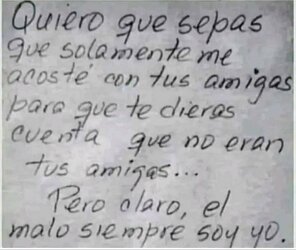 Quiero que sepas
que solamente me
acosté con tus amigas
para que te dieras
cuenta que no eran
tus amigas...
Pero claro, el
malo siempre soy yo.